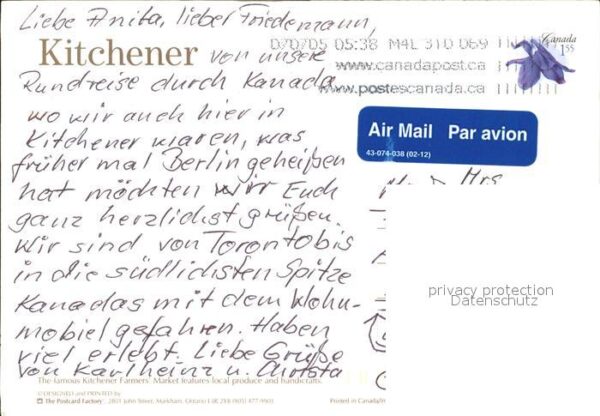 Liebe Anita, lieber Friedemann,
Kitchener
von unser
Rundreise durch Kanada,
wo wir auch hier in
Kitchener waren, was
früher mal Berlin geheißen
hat möchten wir Euch
ganz herzlichst grüßen.
Wir sind von Toronto bis
in die südlichsten Spitze
Kanadas mit dem Wohn-
mobiel gefahren. Haben
viel erlebt. Liebe Grüße
von Karlheinz u.
070705 05:38 M4L 31D 069
www.canadapost.ca
www.postescanada.ca
Canada
1.55
Air Mail Par avion
43-074-038 (02-12)
Mrs
privacy protection
Datenschutz
The famous Kitchener Farmers' Market features local produce and handicrafts.
DESIGNED and PRINTED by
The Postcard Factory
2801 John Street, Markham, Ontario L3R 2Y8 (905) 477-9901
Printed in Canada/